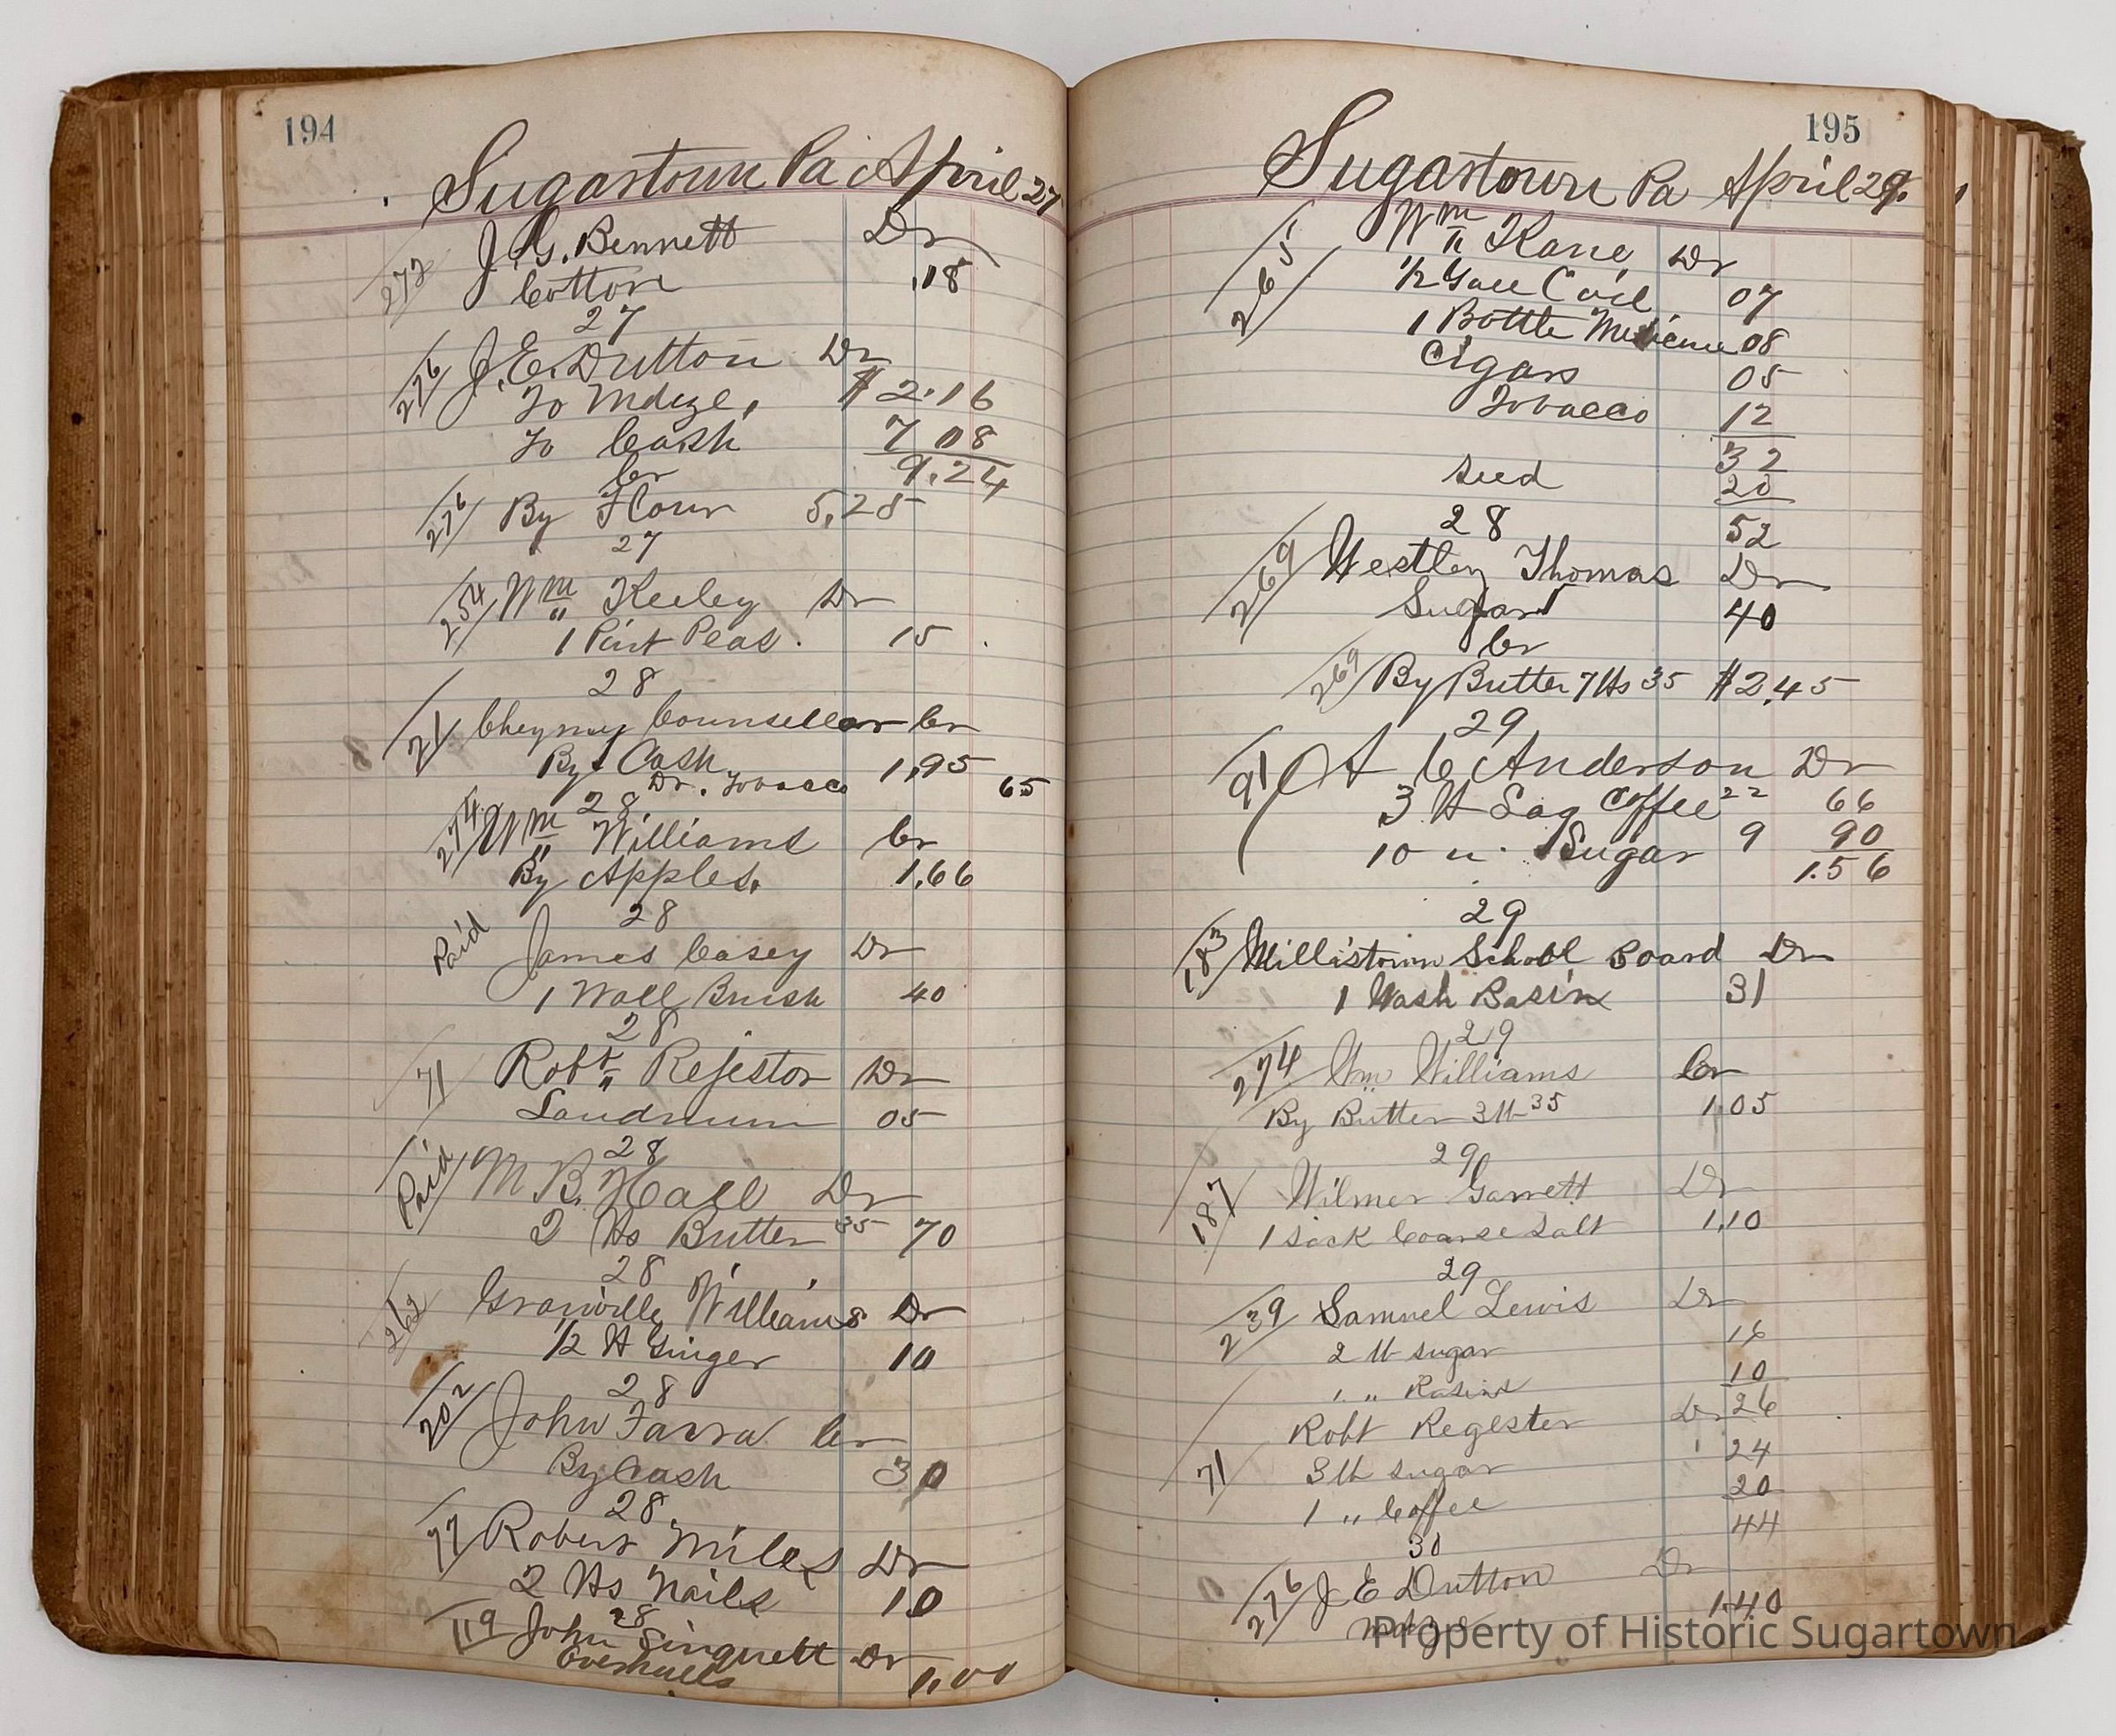 194
Sugartown Pa April 27
J. G. Bennett Dr
272 Cotton .18
27
276 J. E. Dutton Dr
To Mdze, $2.16
To Cash 7 08
9.24
Cr
276 By Flour 5,25
27
254 Wm Keeley Dr
1 Pint Peas. 15
28
21 Cheyney Counsellor Cr
By Cash 1,95
Dr. Tobacco 65
28
274 Wm Williams Cr
By Apples, 1,66
28
Paid James Casey Dr
1 Wall Brush 40
28
71 Robt Rejestor Dr
Laudnum 05
28
Paid M B. Hall Dr
2 lbs Butter 35 70
28
262 Granville Williams Dr
1/2 lb Ginger 10
28
202 John Farra Cr
By Cash 30
28
77 Robert Miles Dr
2 lbs Nails 10
28
119 John Singuett Dr
Overhalls 1.00
195
Sugartown Pa April 29.
265 Wm Kane Dr
1/2 Gall C oil 07
1 Bottle 08
Cigars 05
Tobacco 12
32
Seed 20
28 52
269 Westley Thomas Dr
Sugar 40
Cr
269 By Butter 7 lbs 35 $2,45
29
91 A C Anderson Dr
3 lb Lag Coffee 22 66
10 " Sugar 9 90
1.56
29
183 Willistown School Board Dr
1 Wash Basin 31
29
274 Wm Williams Cr
By Butter 3 lb 35 1,05
29
187 Wilmer Garrett Dr
1 sack Coarse Salt 1,10
29
239 Samuel Lewis Dr
2 lb sugar 16
1 " Rasins 10
26
Robt Register Dr
71 3 lb sugar 24
1 " Coffee 20
44
30
276 J E Dutton Dr
1.40
Property of Historic Sugartown